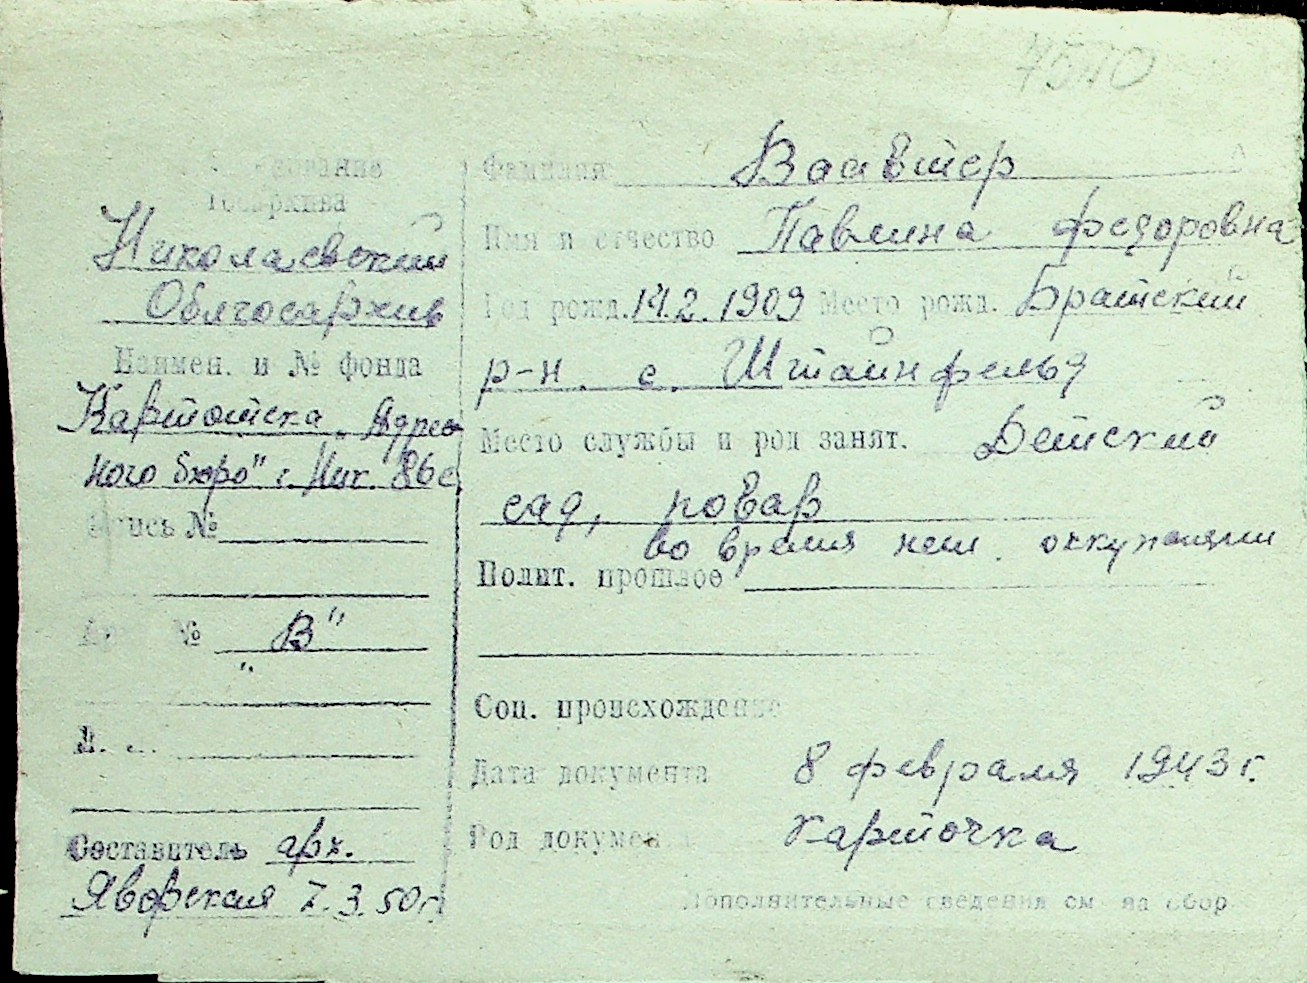 Фамилия Ваавтер
Имя и отчество Павлина Федоровна
Год рожд. 14.2.1909 Место рожд. Братский
р-н. с. Штайнфельд
Место службы и род занят. Детский
сад, повар
во время нем. оккупации
Полит. прошлое
Соц. происхождение
Дата документа 8 февраля 1943 г.
Род докумен карточка
Дополнительные сведения см на обор
Госархива
Николаевский
Облгосархив
Наимен. и № фонда
Картотека „Адрес
ного бюро" г. Ник.
Опись №
№ „В"
Составитель арх.
Яворская 7.3.50 г.